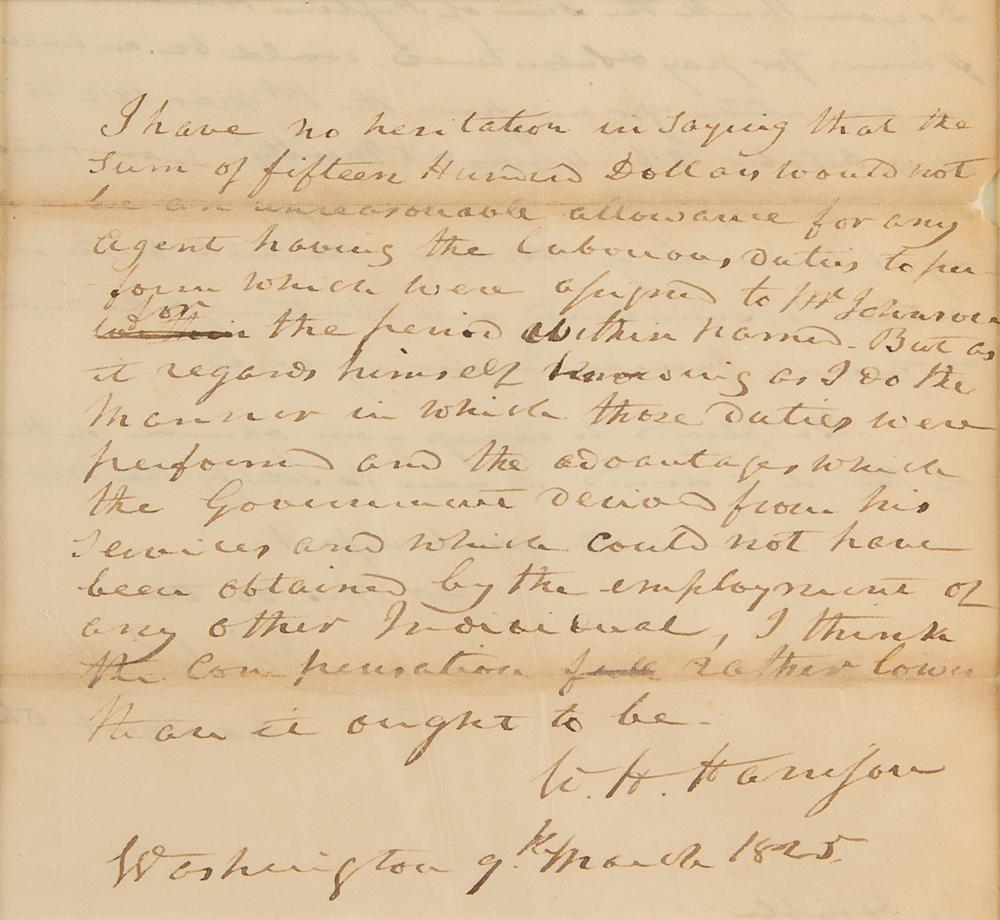 I have no hesitation in saying that the
Sum of fifteen Hundred Dollars would not
be an unreasonable allowance for any
Agent having the labourous duties to per-
form which were assigned to Mr Johnson
for
within the period within named. But as
it regards himself knowing as I do the
manner in which those duties were
performed and the advantages which
the Government derived from his
Services and which could not have
been obtained by the employment of
any other Individual, I think
the Compensation rather lower
than it ought to be.
W. H. Harrison
Washington 9th March 1825